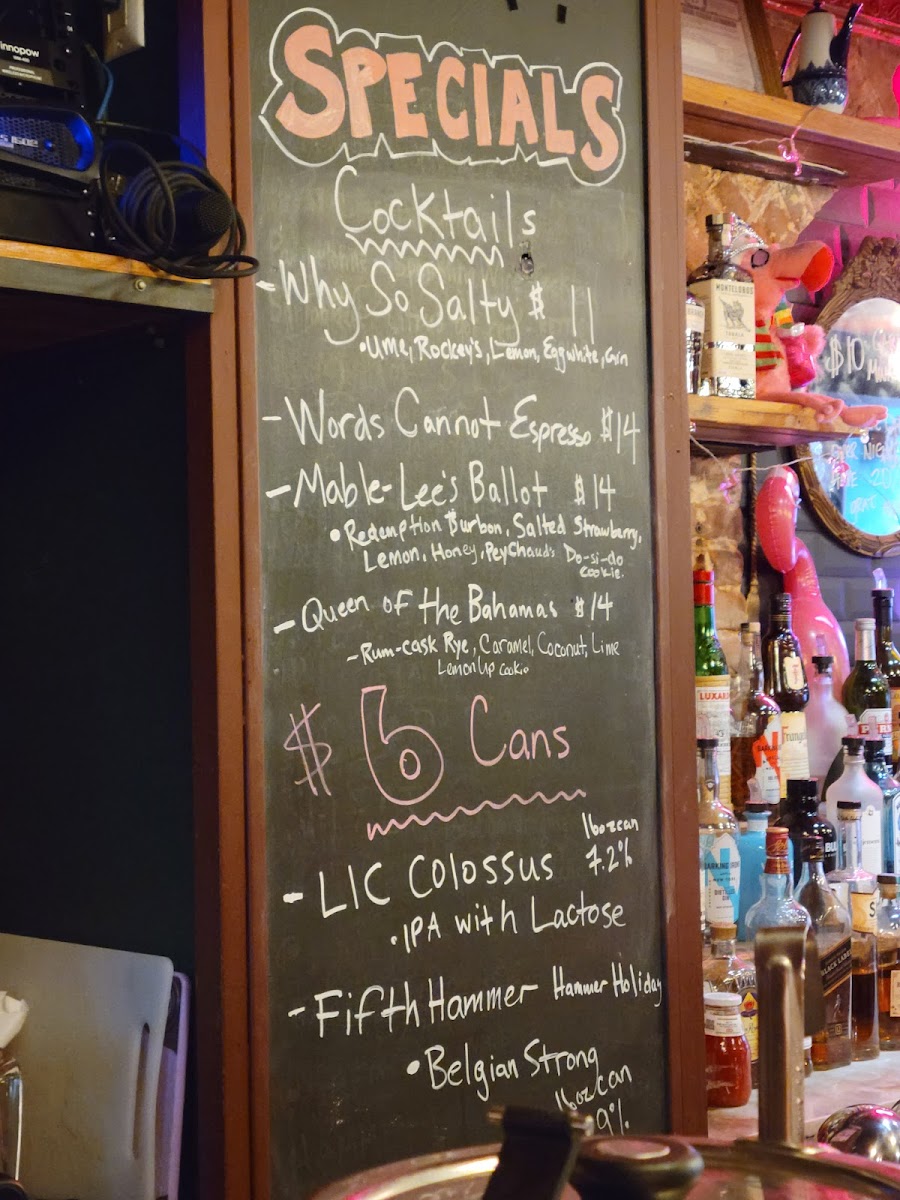 innopow
SPECIALS
Cocktails
- Why So Salty $ 11
• Ume, Rockey's, Lemon, Egg white, Gin
- Words Cannot Espresso $14
- Mable-Lee's Ballot $14
• Redemption Burbon, Salted Strawberry,
Lemon, Honey, PeyChaud's Do-si-do
cookie.
- Queen of the Bahamas $14
- Rum-cask Rye, Caramel, Coconut, Lime
Lemon Up cookie
$6 Cans
16oz can
- LIC Colossus 7.2%
• IPA with Lactose
- Fifth Hammer Hammer Holiday
• Belgian Strong
16oz can
9%
MONTELOBOS
$10
LUXAR
BLACK LABEL